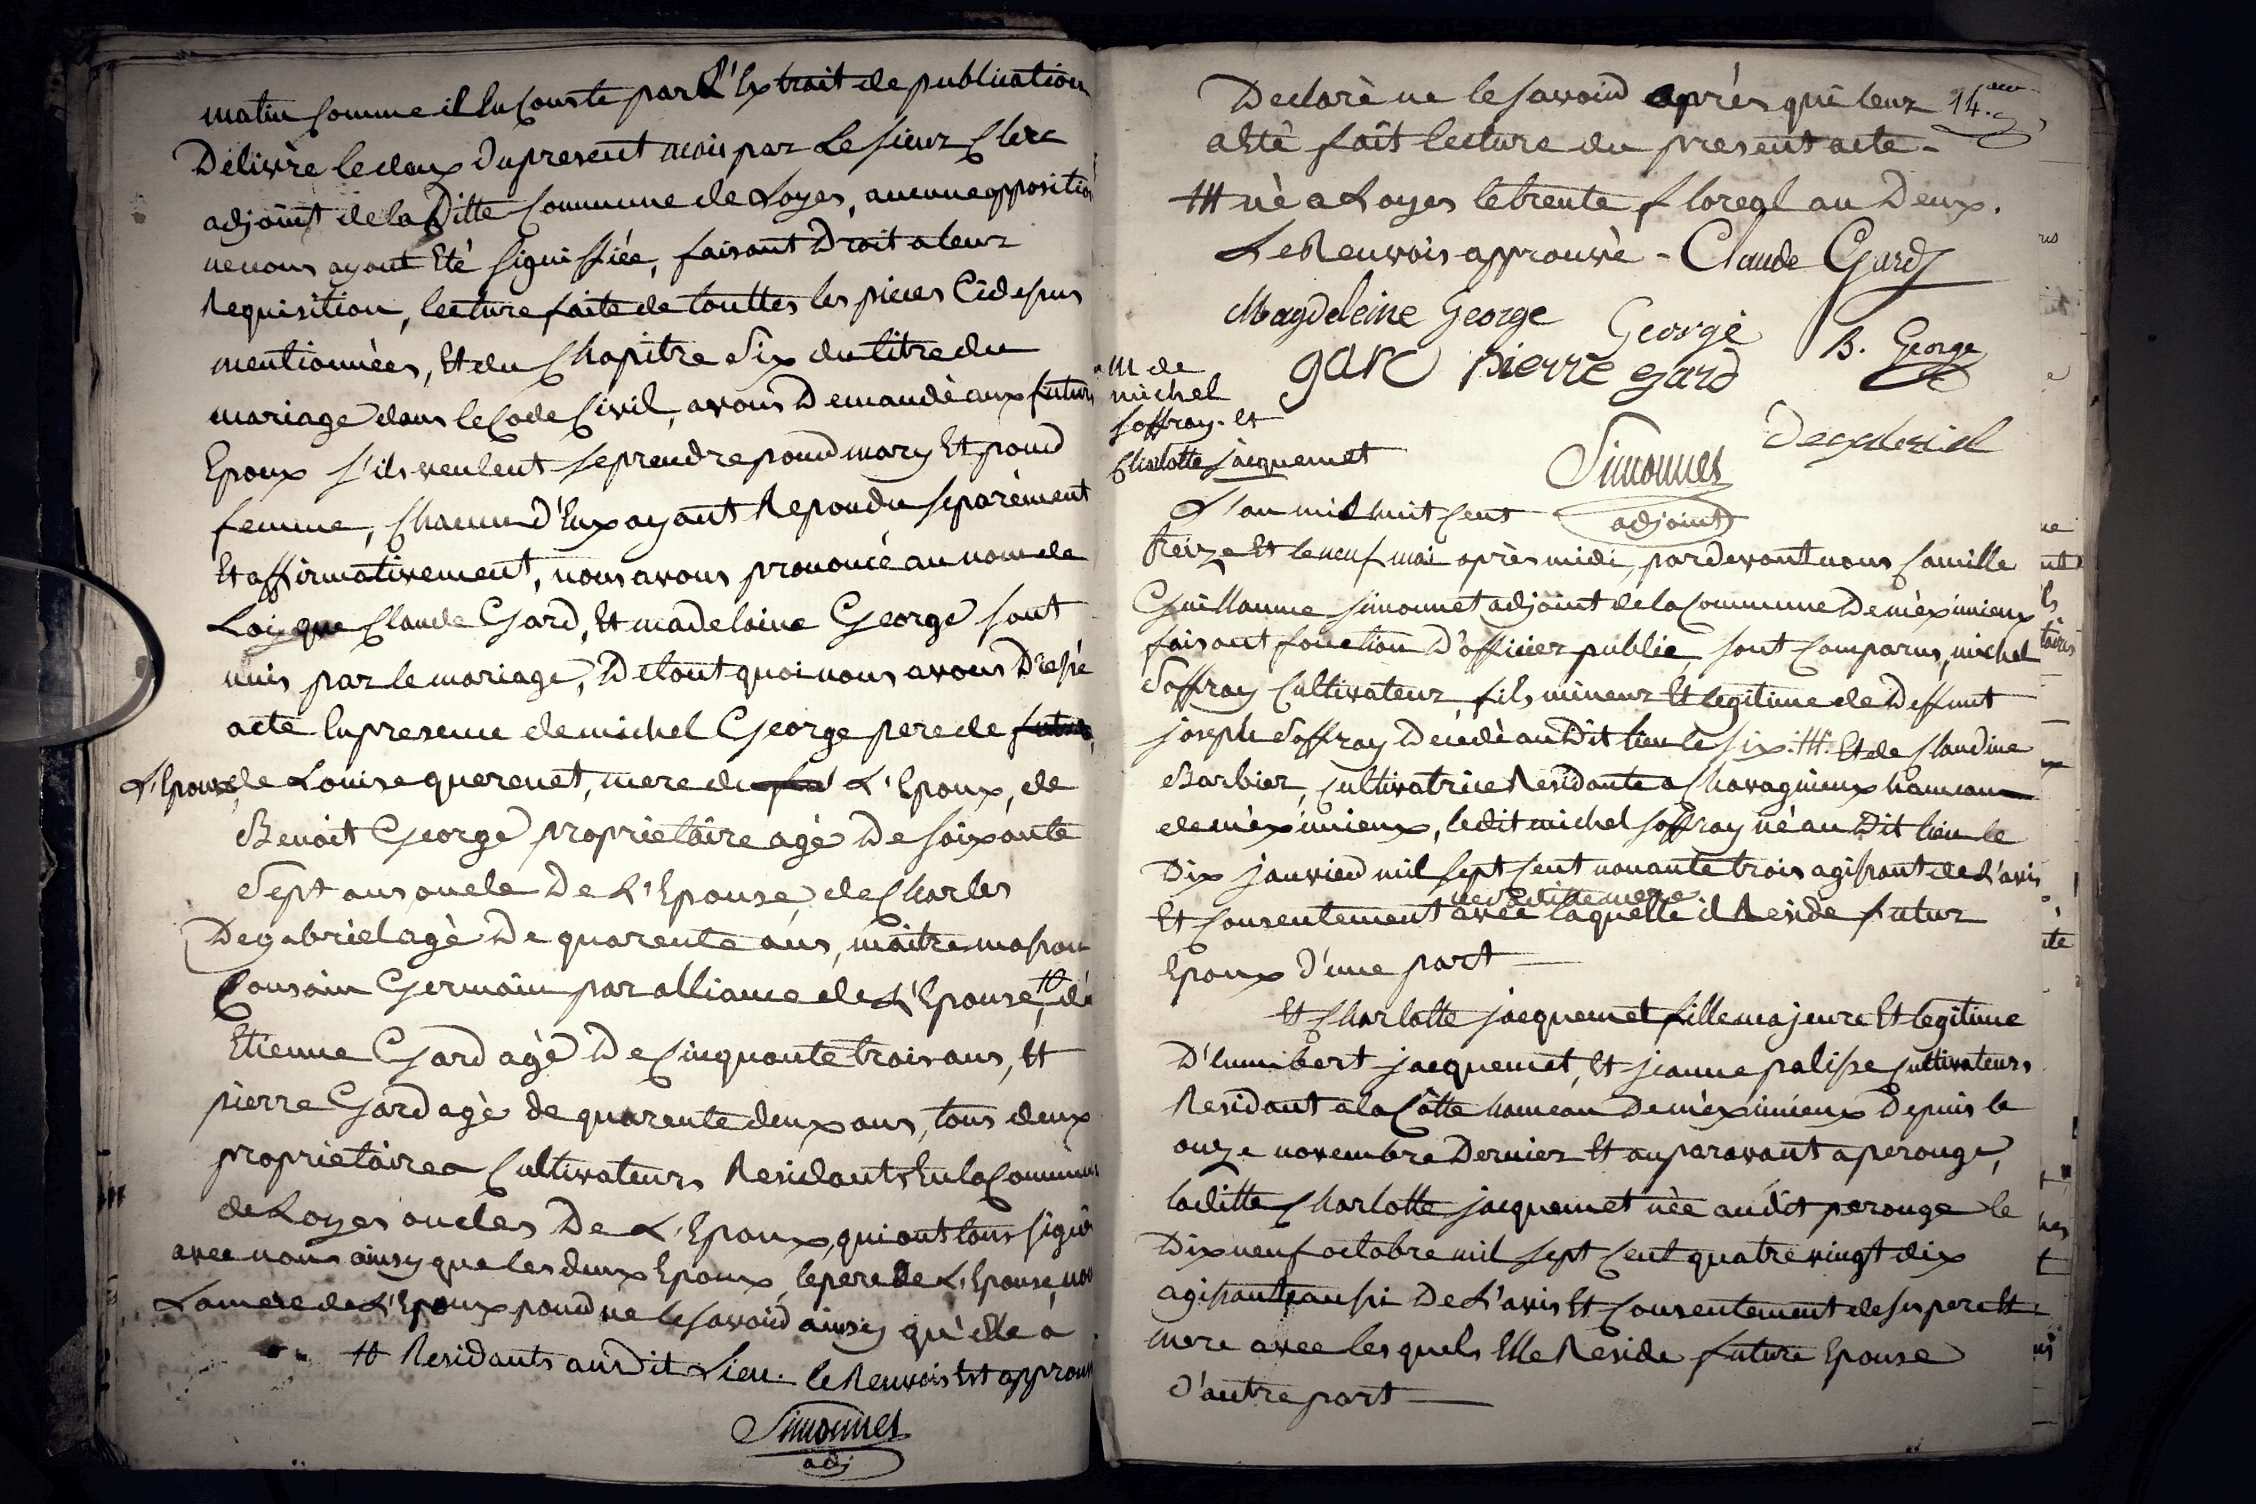 matin Comme il En Conste par L'Extrait de publication
Délivré le deux Du present mois par Le sieur Clerc
adjoint de la Ditte Commune de Loyes, aucune opposition
ne nous ayant Eté signiffiée, faisant Droit a leur
Requisition, lecture faite de touttes les pieces Cidessus
mentionnées, Et du Chapitre Six du titre du
mariage dans le Code Civil, avons Demandé aux futurs
Epoux s'ils veulent se prendre pour mary Et pour
femme, Chacun D'Eux ayant Repondu separément
Et affirmativement, nous avons prononcé au nom de
Loi que Claude Gard, Et madelaine George sont
unis par le mariage, De tout quoi nous avons Dressé
acte En presence de michel George pere de
L'Epouse, de Louise querenet, mere de L'Epoux, de
Benoit George proprietaire agé De soixante
Sept ans oncle De L'Epouse, de Charles
Degabriel agé De quarente ans, maitre masson
Cousain Germain par alliance de L'Epouse, # de
Etienne Gard agé De Cinquante trois ans, Et
pierre Gard agé de quarente deux ans, tous deux
proprietaires Cultivateurs Residants En la Commune
de Loyes oncles De L'Epoux, qui ont tous signé
avec nous ainsy que les deux Epoux, le pere de L'Epouse, non
La mere de L'Epoux pour ne le savoir ainsy qu'elle a
# Residants au Dit Lieu. le Renvois Est approuvé
Simonnet
adj
Declaré ne le savoir aprés que leur
a Eté fait lecture du present acte -
14.
### né a Loyes le trente floreal an Deux.
Le Renvois approuvé - Claude Gard
Magdeleine George George B. George
garc pierre gard
Degabriel
Simonnet
adjoint
M de
michel
Soffray. Et
Charlotte jacquemet
L'an mil huit Cent
treize Et le neuf mai après midi, pardevant nous Camille
Guillaume Simonnet adjoint de la Commune De méximieux
faisant fonction D'officier public, sont Comparus, michel
Soffray Cultivateur, fils mineur Et legitime de Deffunt
joseph Soffray Décédé au Dit lieu le six. ### Et de Claudine
Barbier, Cultivatrice Residante a Chavagnieux hameau
de méximieux, ledit michel Soffray né au Dit lieu le
Dix janvier mil sept Cent nonante trois agissant de L'avis
Et Consentement avec laquelle il Reside futur
Epoux D'une part
Et Charlotte jacquemet fille majeure Et legitime
D'humbert jacquemet, Et jeanne palisse Cultivateurs
Residant a la Côtte hameau De méximieux Depuis le
onze novembre Dernier Et auparavant a perouge,
laditte Charlotte jacquemet née audit perouge le
Dix neuf octobre mil sept Cent quatre vingt dix
agissante aussi De L'avis Et Consentement de ses pere Et
mere avec lesquels Elle Reside future Epouse
D'autre part